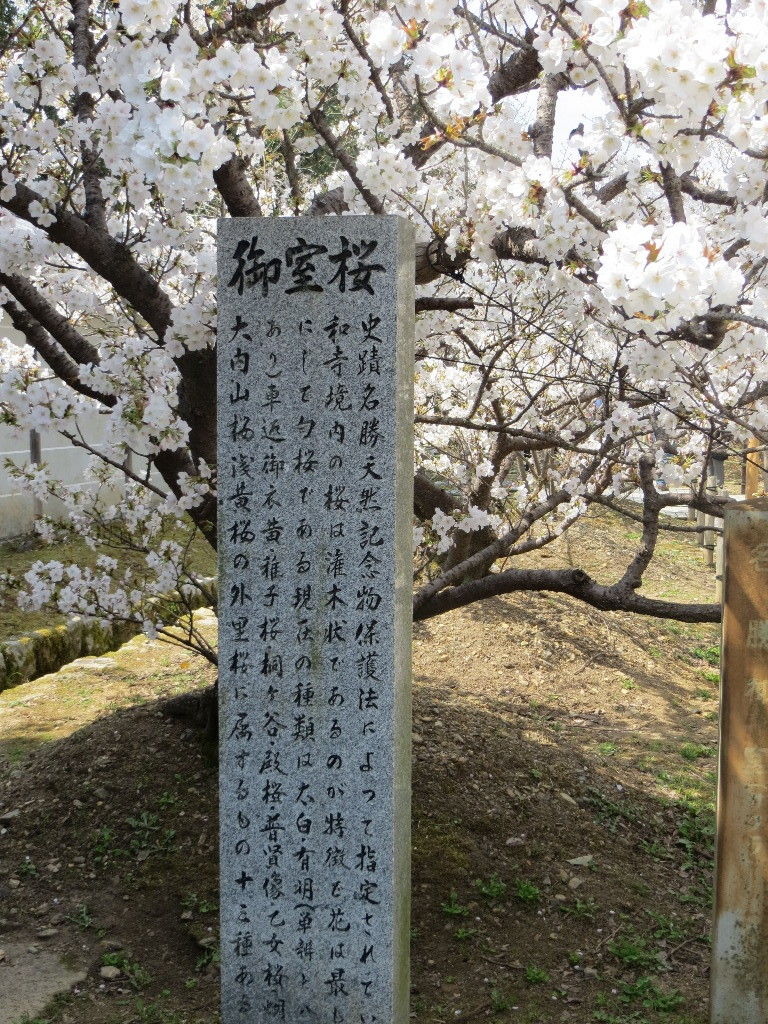 御室桜
史蹟名勝天然記念物保護法によって指定されてい
和寺境内の桜は潅木状であるのが特徴で花は最も
にして匂桜である現在の種類は太白・有明(単辨と八
あり)車返御衣黄稚子桜桐ヶ谷・殿桜・普賢像乙女桜
大内山桜浅黄桜の外里桜に属するもの十三種ある